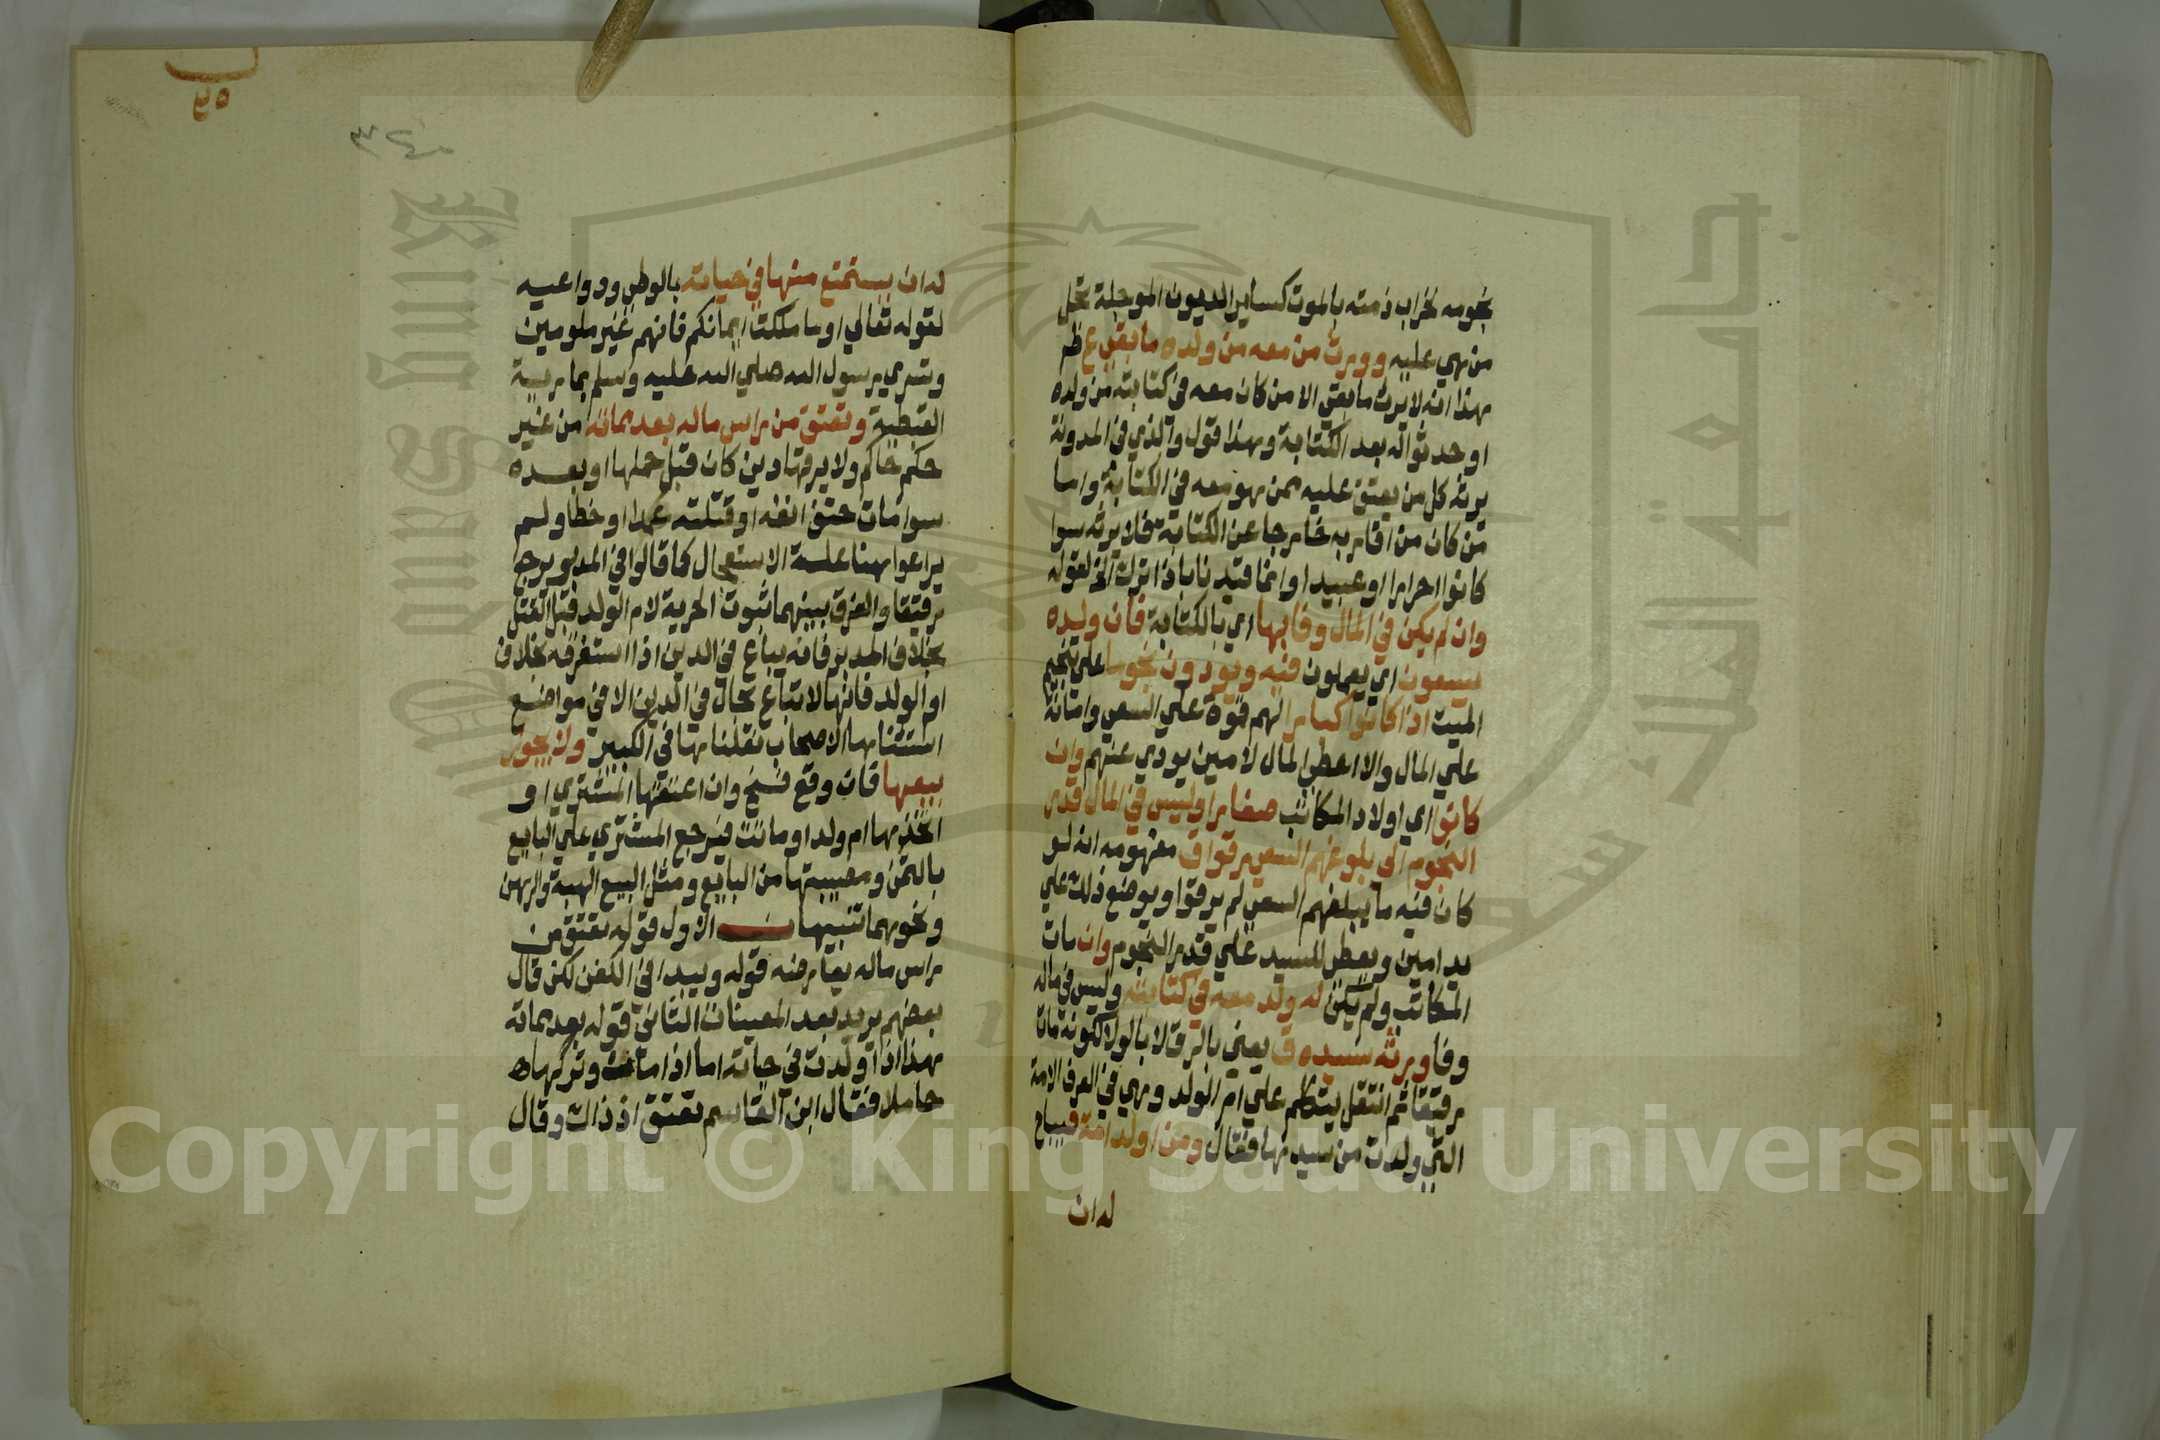 نجومه لخراب ذمته بالموت كساير الديون الموجلة تحل
من هي عليه وورث من معه من ولده ما بقي ع ظم
هذا انه لا يرث ما بقي الا من كان معه في كتابته من ولده
او حدثوا له بعد الكتابة وهذا قول والذي في المدونة
يرثه كل من يعتق عليه ممن هو معه في الكتابة واما
من كان من اقاربه خارجا عن الكتابة فلا يرثه سوا
كانوا احرارا او عبيدا وانما قيدنا باذا ترك الخ لقوله
وان لم يكن في المال وفا بها اي بالكتابة فان ولده
يسعون اي يعملون فيه ويودون نجوما على تنجيم
الميت اذا كانوا كبارا لهم قوة علي السعي وامانة
علي المال والا اعطي المال لامين يودي عنهم وان
كانوا اي اولاد المكاتب صغارا وليس في المال قدر
النجوم الي بلوغهم السعي رقوا ق مفهومه انه لو
كان فيه ما يبلغهم السعي لم يرقوا ويوضع ذلك علي
يد امين ويعطي للسيد علي قدر النجوم وان مات
المكاتب ولم يكن له ولد معه في كتابته وليس في ماله
وفا ورثه سيده ق يعني بالرق لا بالولا لكونه مات
رقيقا ثم انتقل يتكلم علي ام الولد وهي في العرف الامة
التي ولدت من سيدها فقال ومن اولد امة فيباح
له ان
٤٥
٣٤٠
له ان يستمتع منها في حياته بالوطي ودواعيه
لقوله تعالي او ما ملكت ايمانكم فانهم غير ملومين
وتسري رسول الله صلي الله عليه وسلم بمارية
القبطية وتعتق من راس ماله بعد مماته من غير
حكم حاكم ولا يرقها دين كان قبل حملها او بعده
سوا مات حتف انفه او قتلته عمدا او خطا ولم
يراعوا هنا علة الاستعجال كما قالوا في المدبر يرجع
رقيقا والفرق بينهما ثبوت الحرية لام الولد قبل القتل
بخلاف المدبر فانه يباع في الدين اذا استغرقه بخلاف
ام الولد فانها لا تباع بحال في الدين الا في مواضع
استثناها الاصحاب نقلناها في الكبير ولا يجوز
بيعها فان وقع فسخ وان اعتقها المشتري او
اتخذها ام ولد او ماتت فيرجع المشتري علي البايع
بالثمن ومصيبتها من البايع ومثل البيع الهبة والرهن
ونحوهما تنبيهات الاول قوله تعتق من
راس ماله يعارضه قوله ويبدا في الكفن لكن قال
بعضهم يريد بعد المعينات الثاني قوله بعد مماته
هذا اذا ولدت في حياته اما اذا مات وتركها
حاملا فقال ابن القاسم تعتق اذ ذاك وقال